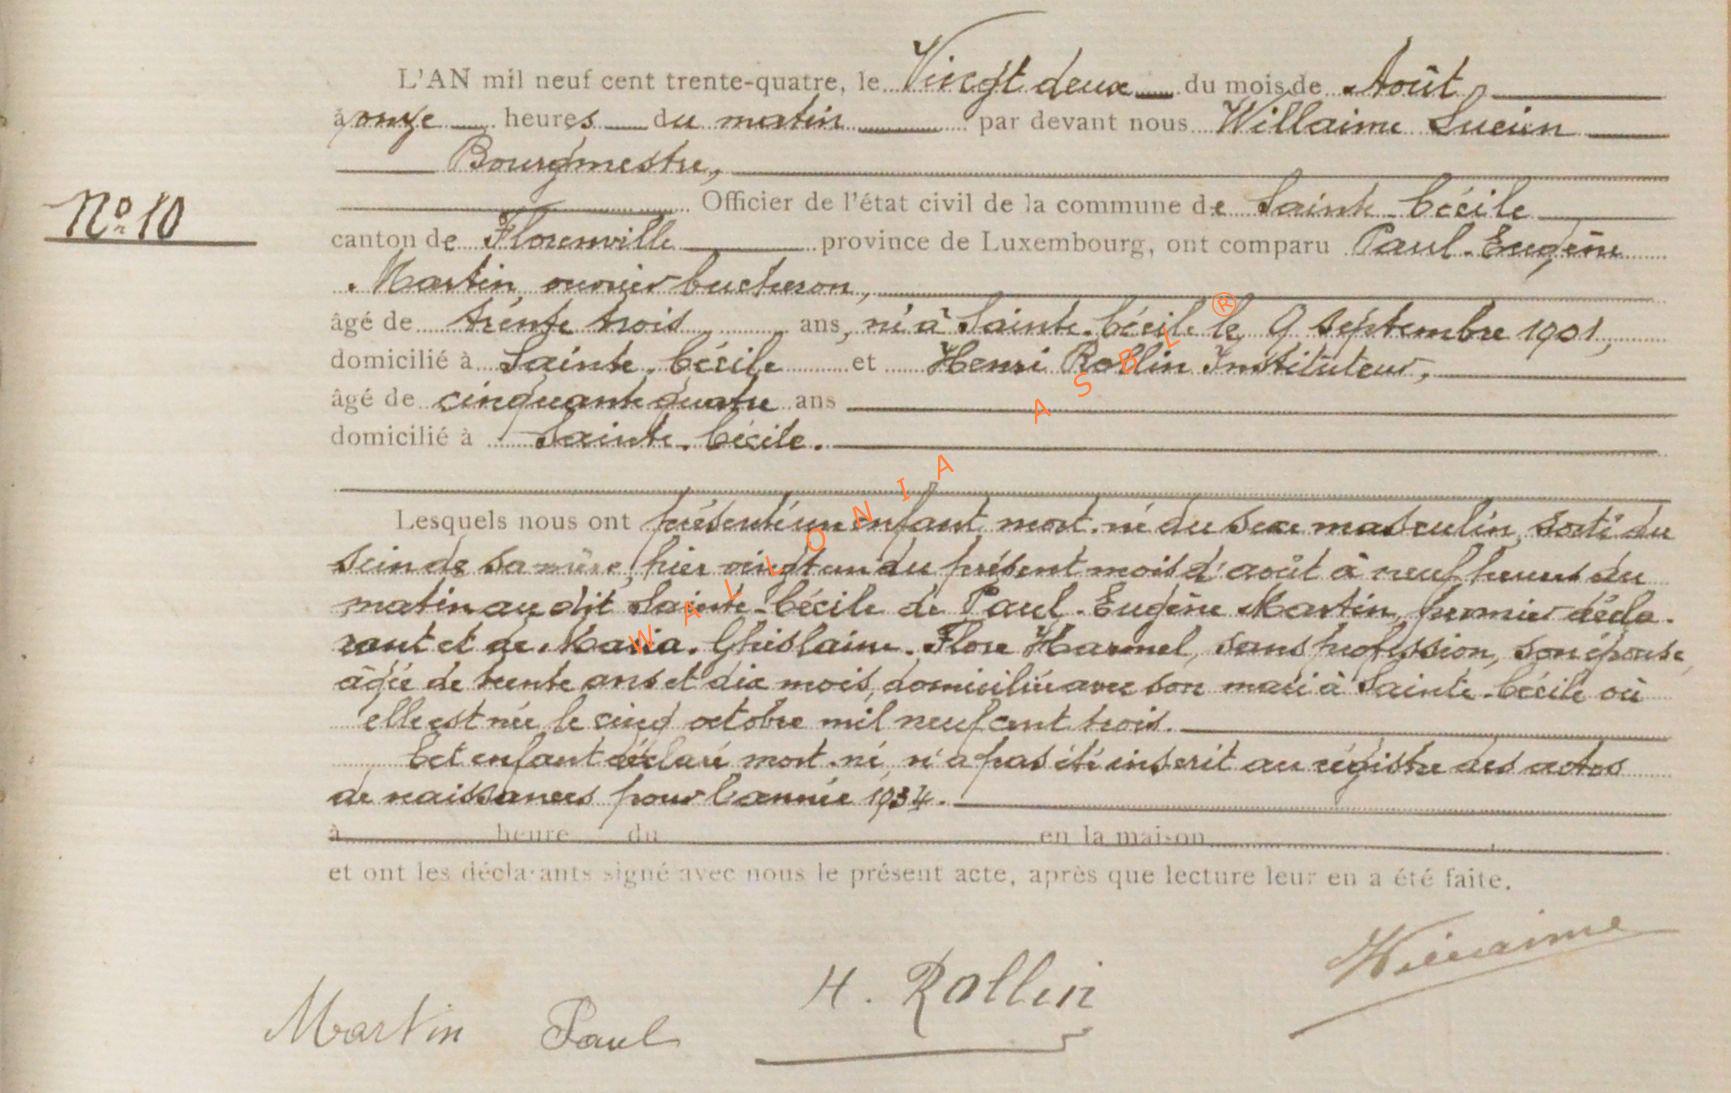 L'AN mil neuf cent trente-quatre, le Vingt deux du mois de Août
à onze heures du matin par devant nous Willaime Lucien
Bourgmestre,
N° 10
Officier de l'état civil de la commune de Sainte-Cécile
canton de Florenville province de Luxembourg, ont comparu Paul-Eugène
Martin, ouvrier bucheron,
âgé de trente trois ans, né à Sainte-Cécile le 9 septembre 1901,
domicilié à Sainte-Cécile et Henri Rollin Instituteur,
âgé de cinquante quatre ans
domicilié à Sainte-Cécile.
Lesquels nous ont présenté un enfant mort-né du sexe masculin, sorti du
sein de sa mère, hier vingt un du présent mois d'août à neuf heures du
matin au dit Sainte-Cécile de Paul-Eugène Martin, premier décla-
rant et de Maria-Ghislaine-Flore Harmel, sans profession, son épouse,
âgée de trente ans et dix mois, domiciliée avec son mari à Sainte-Cécile où
elle est née le cinq octobre mil neuf cent trois.
Cet enfant déclaré mort-né, n'a pas été inscrit au régistre des actes
de naissances pour l'année 1934.
à heure du en la maison
et ont les déclarants signé avec nous le présent acte, après que lecture leur en a été faite.
Willaime
H. Rollin
Martin Paul
WALLONIA ASBL ®